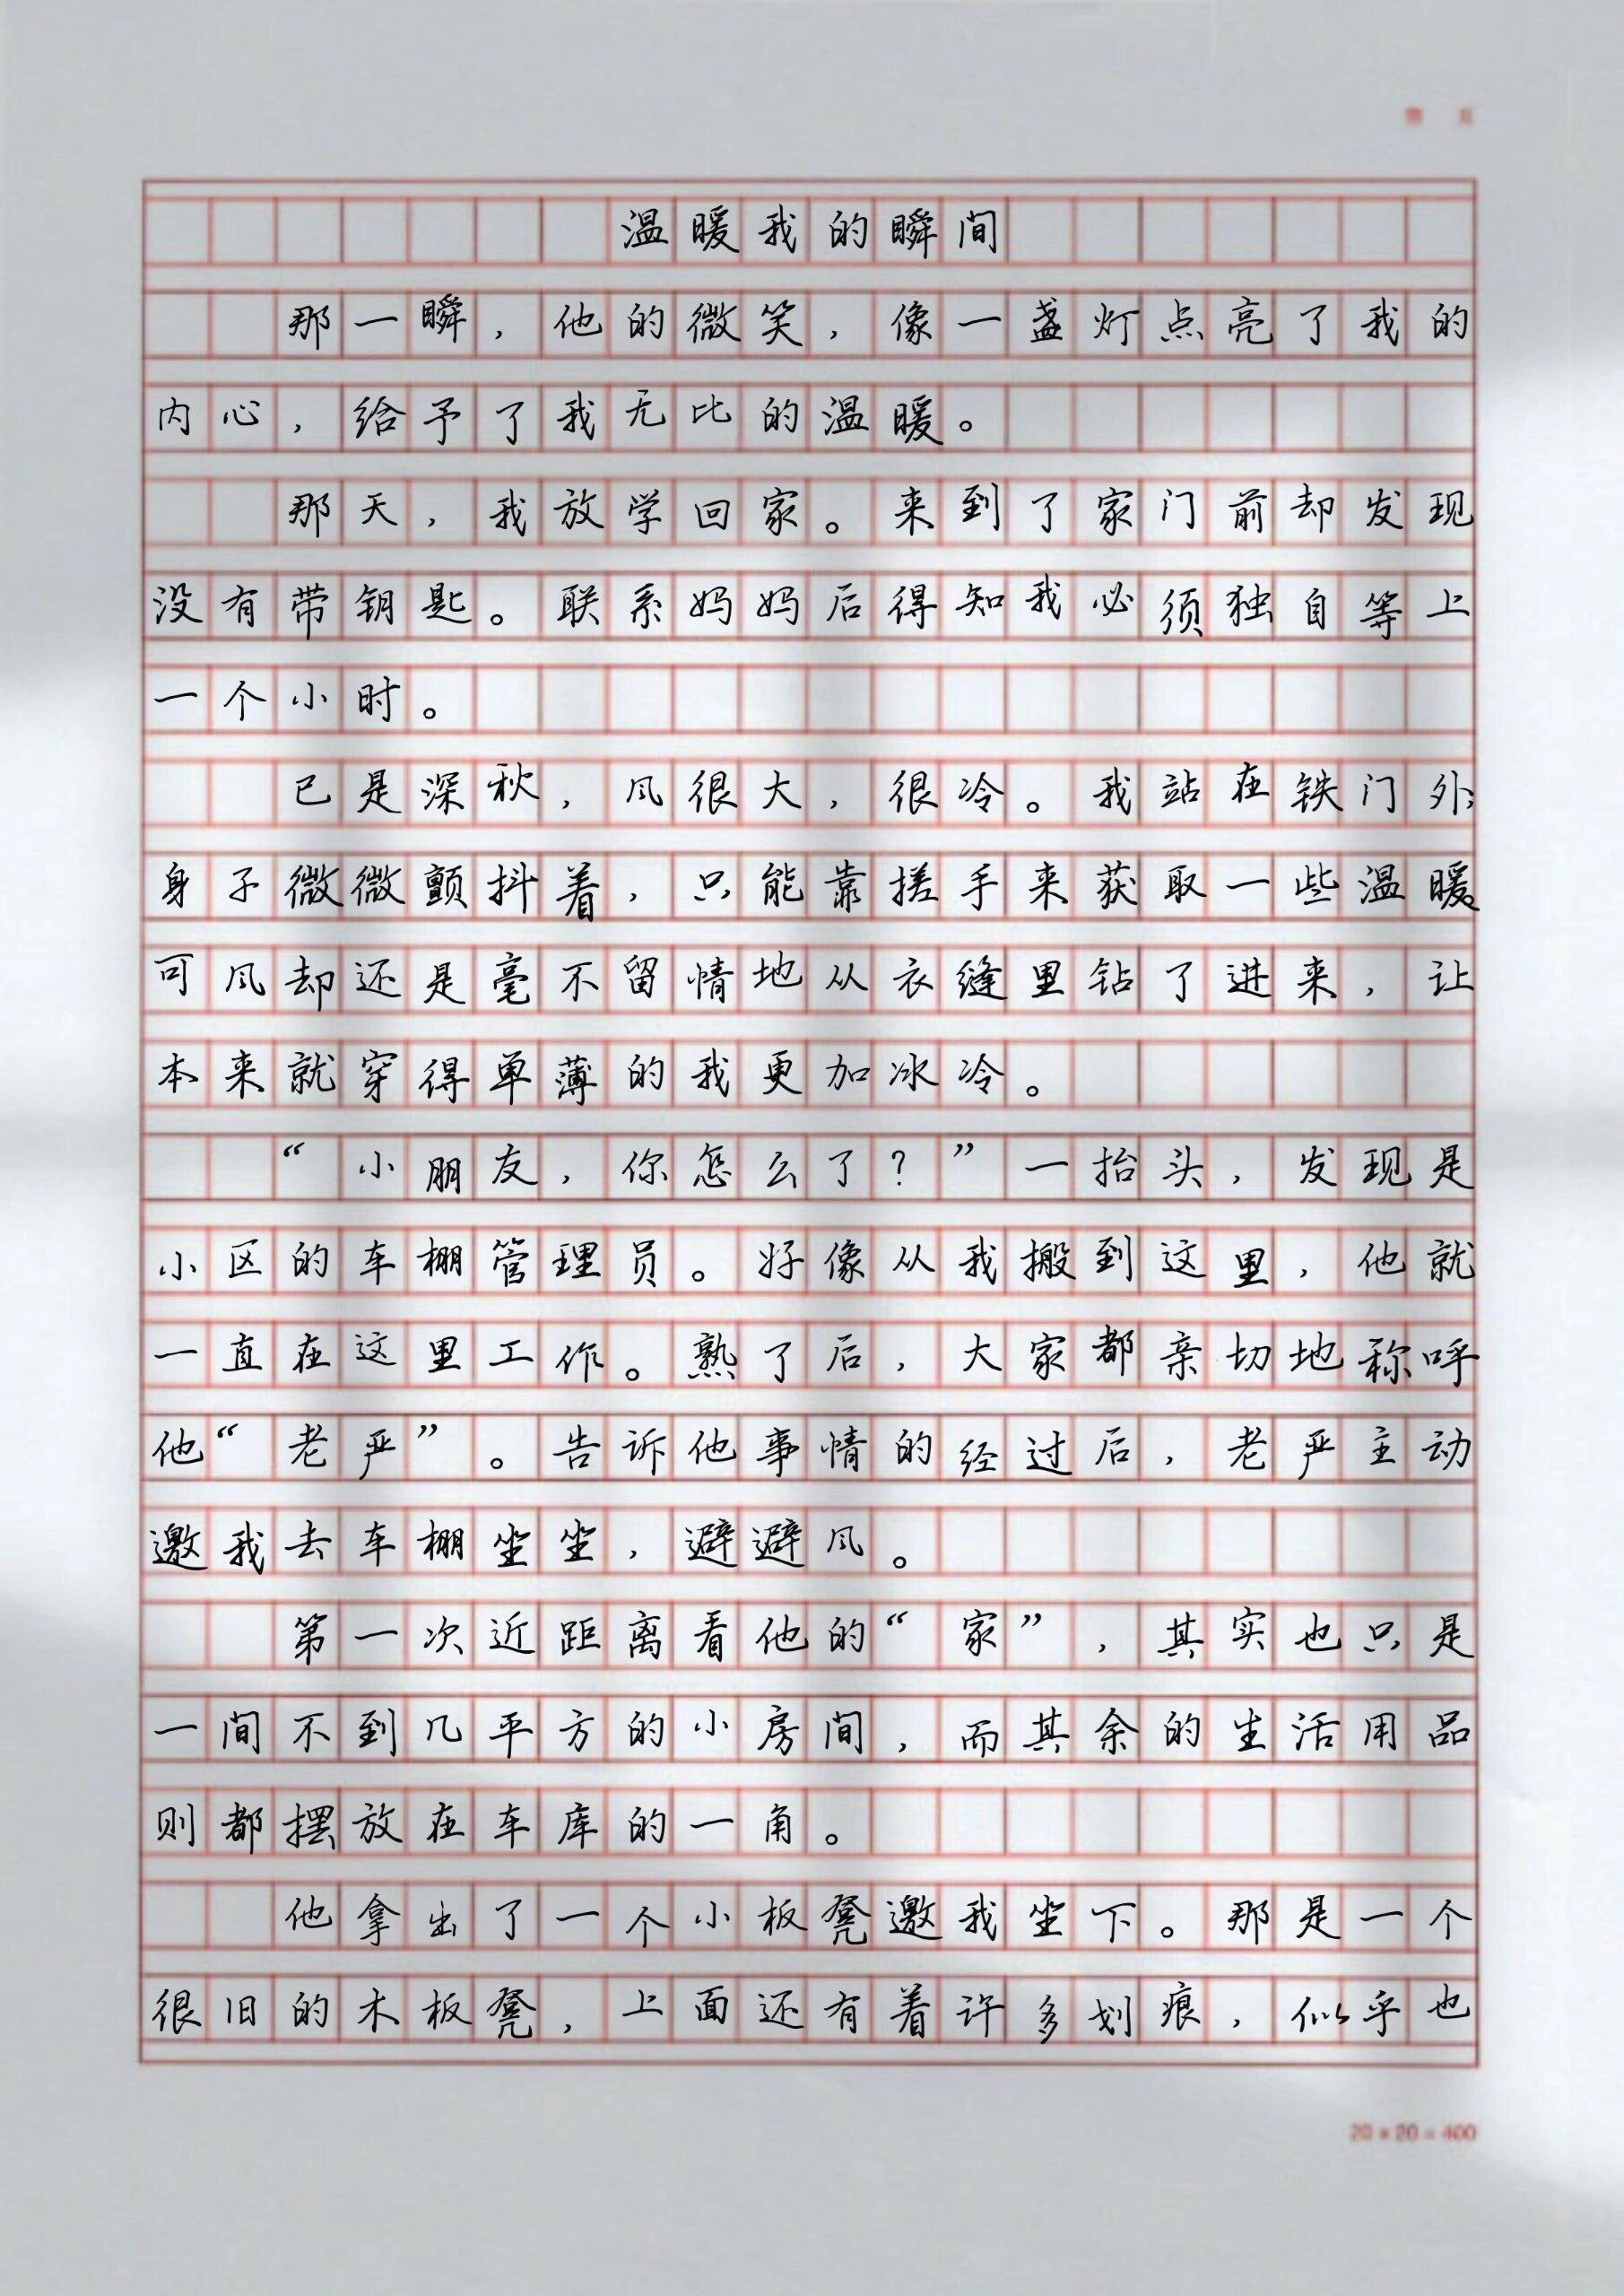 温暖我的瞬间
那一瞬，他的微笑，像一盏灯点亮了我的
内心，给予了我无比的温暖。
那天，我放学回家。来到了家门前却发现
没有带钥匙。联系妈妈后得知我必须独自等上
一个小时。
已是深秋，风很大，很冷。我站在铁门外，
身子微微颤抖着，只能靠搓手来获取一些温暖。
可风却还是毫不留情地从衣缝里钻了进来，让
本来就穿得单薄的我更加冰冷。
“小朋友，你怎么了？”一抬头，发现是
小区的车棚管理员。好像从我搬到这里，他就
一直在这里工作。熟了后，大家都亲切地称呼
他“老严”。告诉他事情的经过后，老严主动
邀我去车棚坐坐，避避风。
第一次近距离看他的“家”，其实也只是
一间不到几平方的小房间，而其余的生活用品
则都摆放在车库的一角。
他拿出了一个小板凳邀我坐下。那是一个
很旧的木板凳，上面还有着许多划痕，似乎也
20×20=400